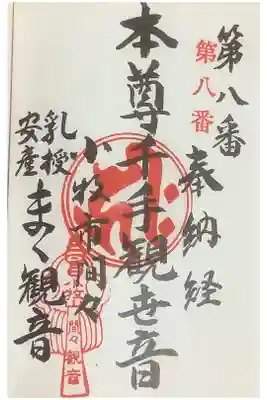 第八番
第八番
奉納経
本尊千手観世音
小牧市間々
乳授
安産
まゝ観音
間々観音